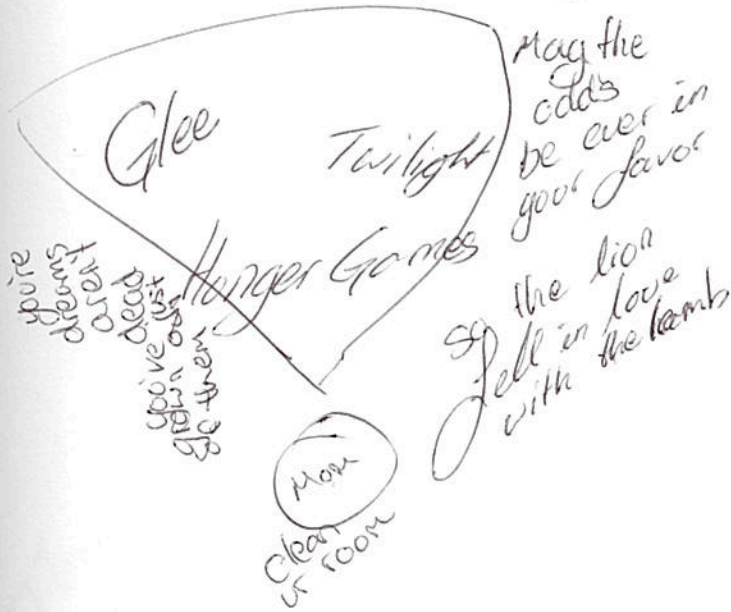 Glee
Twilight
Hunger Games
May the
odds
be ever in
your favor
so the lion
fell in love
with the lamb
your
dreams
aren't
dead
you've just
of them
Mom
clean
ur room